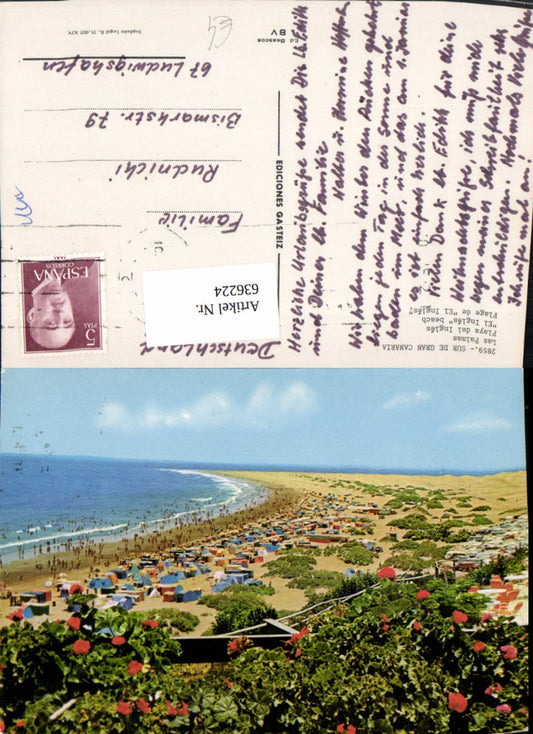 2859. - SUR DE GRAN CANARIA
Las Palmas
Playa del Inglés
"El Inglés" beach
Plage de "El Inglés"
Herzliche Urlaubsgrüße sendet Dir lb. Edith
und Deiner lb. Familie
Wir haben den Winter den Rücken gekehrt
liegen jeden Tag in der Sonne und
baden im Meer, und das am 1. Januar
es ist einfach herrlich.
Vielen Dank lb. Edith für deine
Weihnachtsgrüße, ich muß mich
wegen meiner Schreibfaulheit sehr
entschuldigen. Nochmals viele Grüße
Ich rufe mal an!
EDICIONES GASTEIZ
Ed. Beascoa
BV
Depósito Legal B. 31.007 XIV.
ESPAÑA
CORREOS
5
PTAS
Familie
Rudnichi
Bismarkstr. 79
67 Ludwigshafen
Deutschland
Artikel Nr.
636224